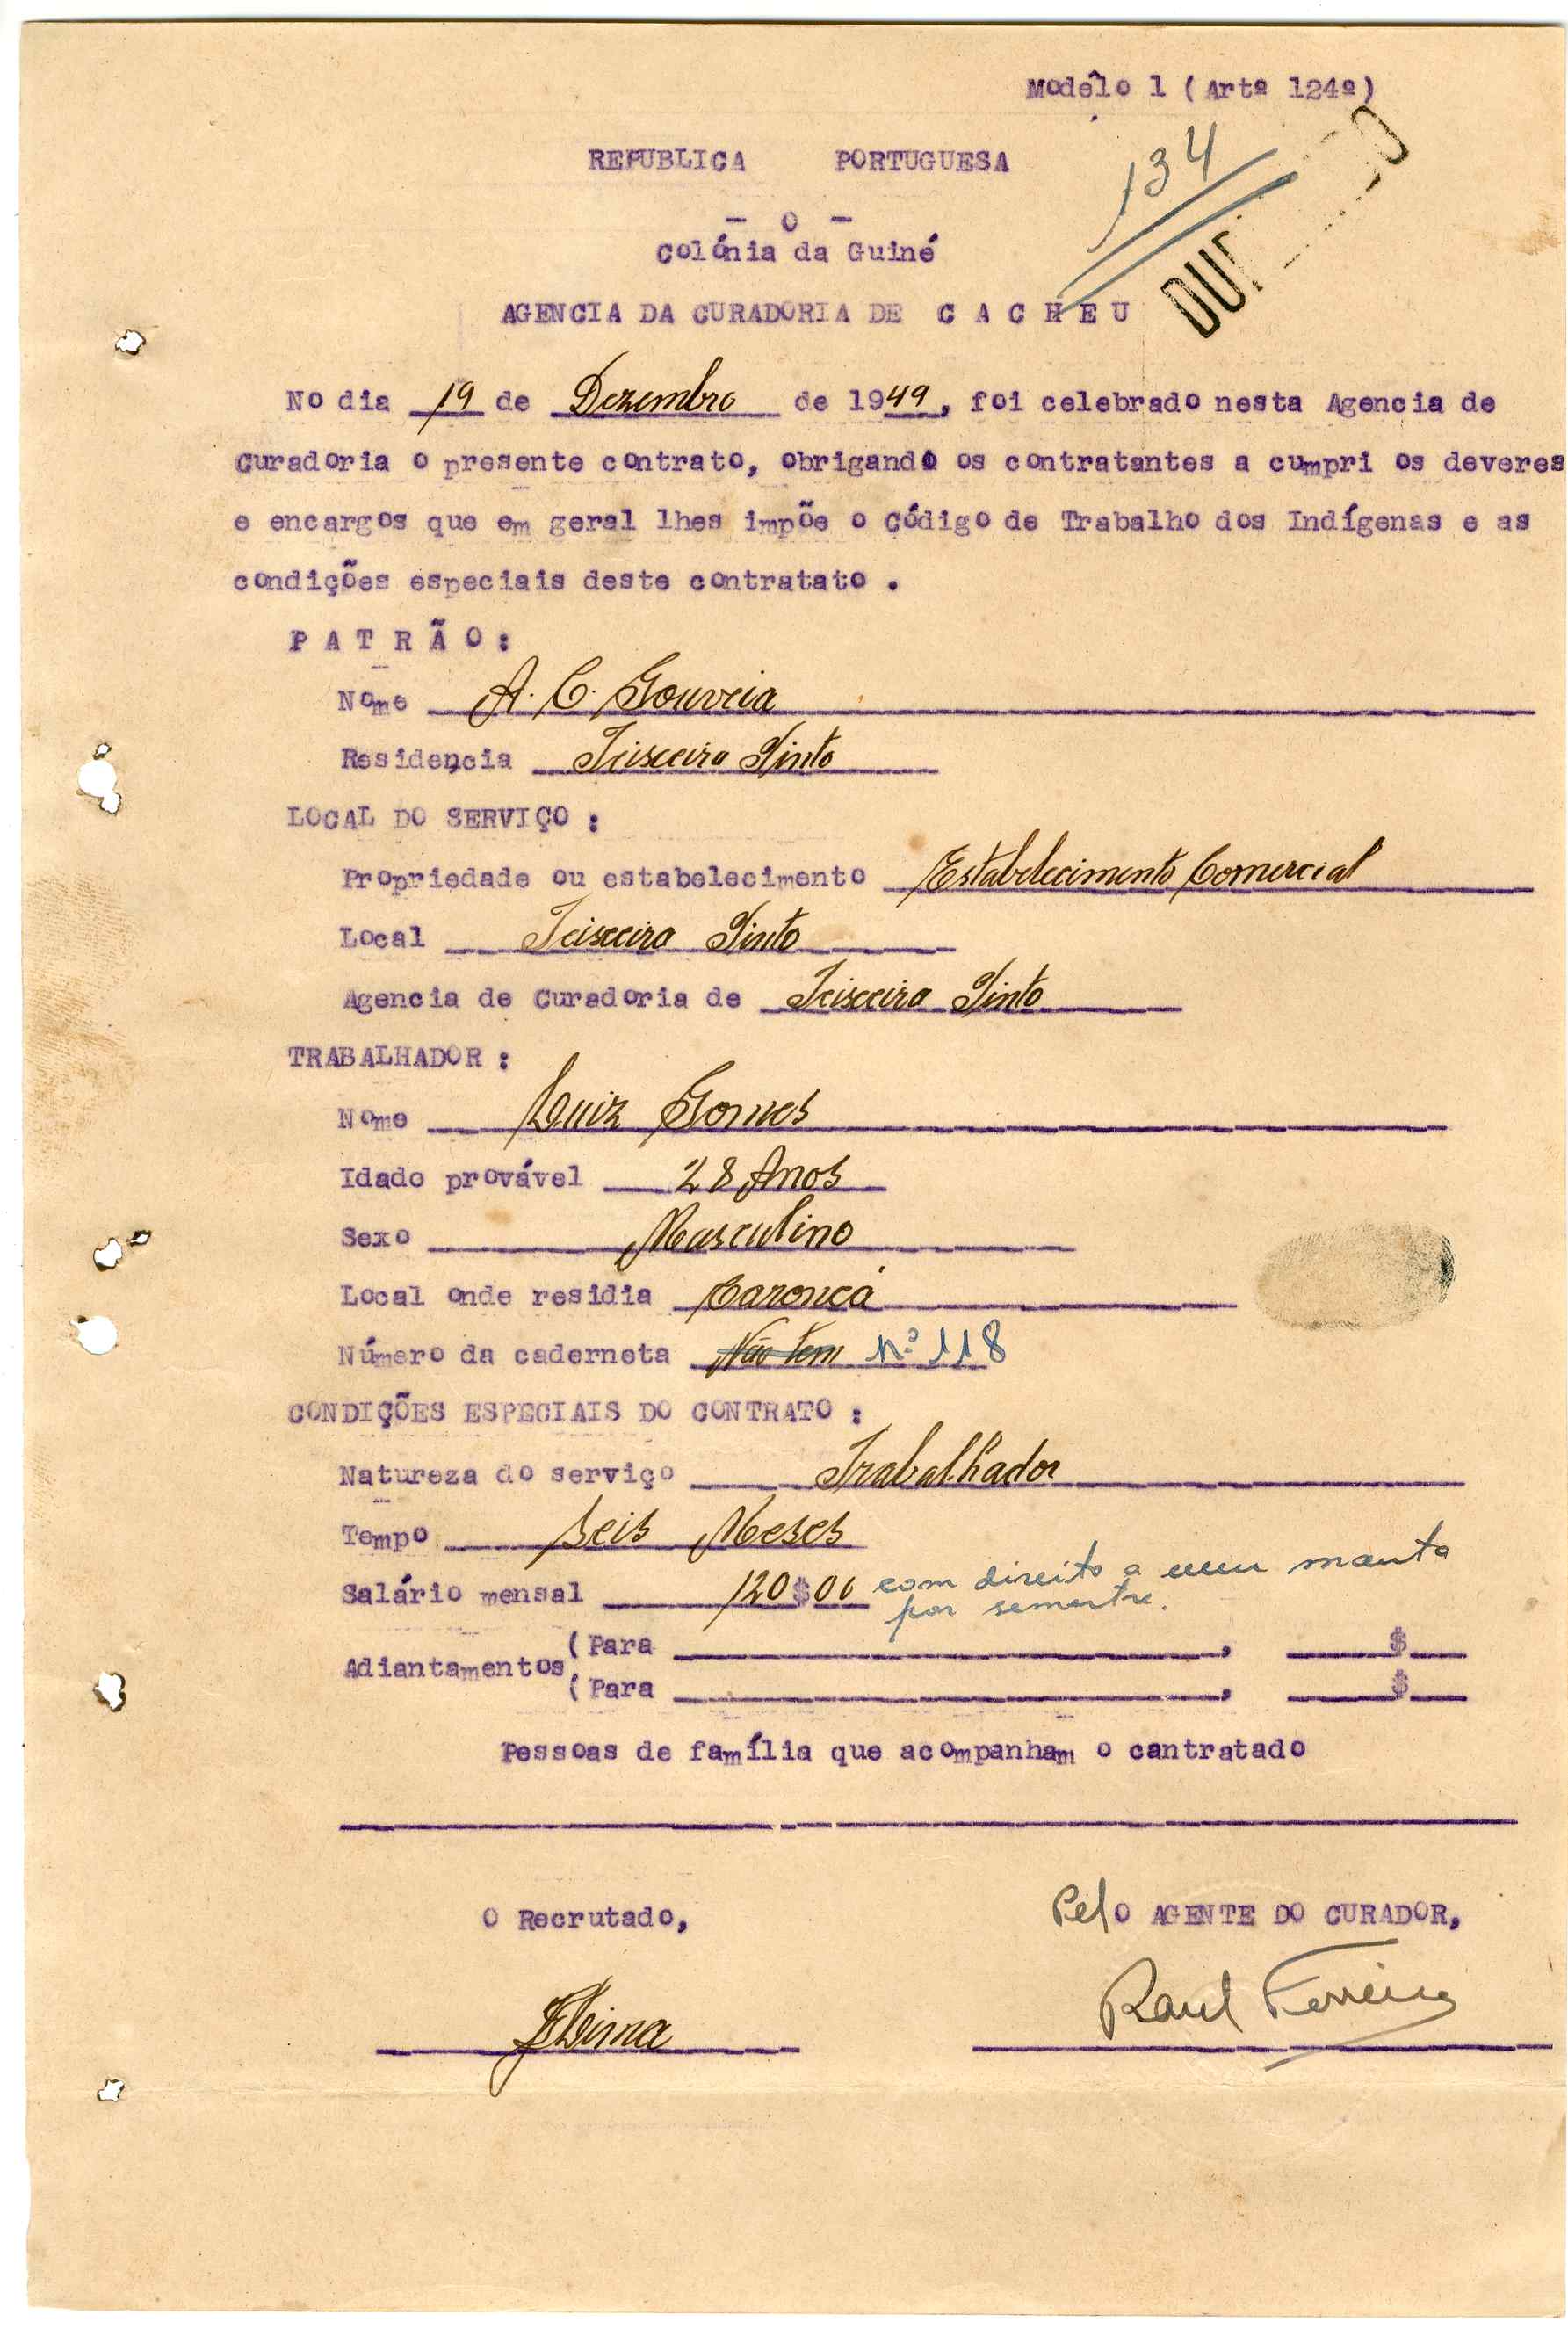 Modêlo 1 (Artº 124º)
134
REPUBLICA PORTUGUESA
- o -
Colónia da Guiné
AGENCIA DA CURADORIA DE C A C H E U
No dia 19 de Dezembro de 1949, foi celebrado nesta Agencia de
Curadoria o presente contrato, obrigando os contratantes a cumpri os deveres
e encargos que em geral lhes impõe o Código de Trabalho dos Indígenas e as
condições especiais deste contratato .
P A T R Ã O :
Nome A. C. Gouveia
Residencia Teixeira Pinto
LOCAL DO SERVIÇO :
Propriedade ou estabelecimento Estabelecimento Comercial
Local Teixeira Pinto
Agencia de Curadoria de Teixeira Pinto
TRABALHADOR :
Nome Luiz Gomes
Idado provável 28 Anos
Sexo Masculino
Local onde residia Caroncá
Número da caderneta Não tem Nº 118
CONDIÇÕES ESPECIAIS DO CONTRATO :
Natureza do serviço Trabalhador
Tempo Seis Meses
Salário mensal 120$00 com direito a uma manta
por semestre.
Adiantamentos (Para , $
(Para , $
Pessoas de família que acompanham o cantratado
O Recrutado,
Pelo AGENTE DO CURADOR,
Lima
Raul Ferreira